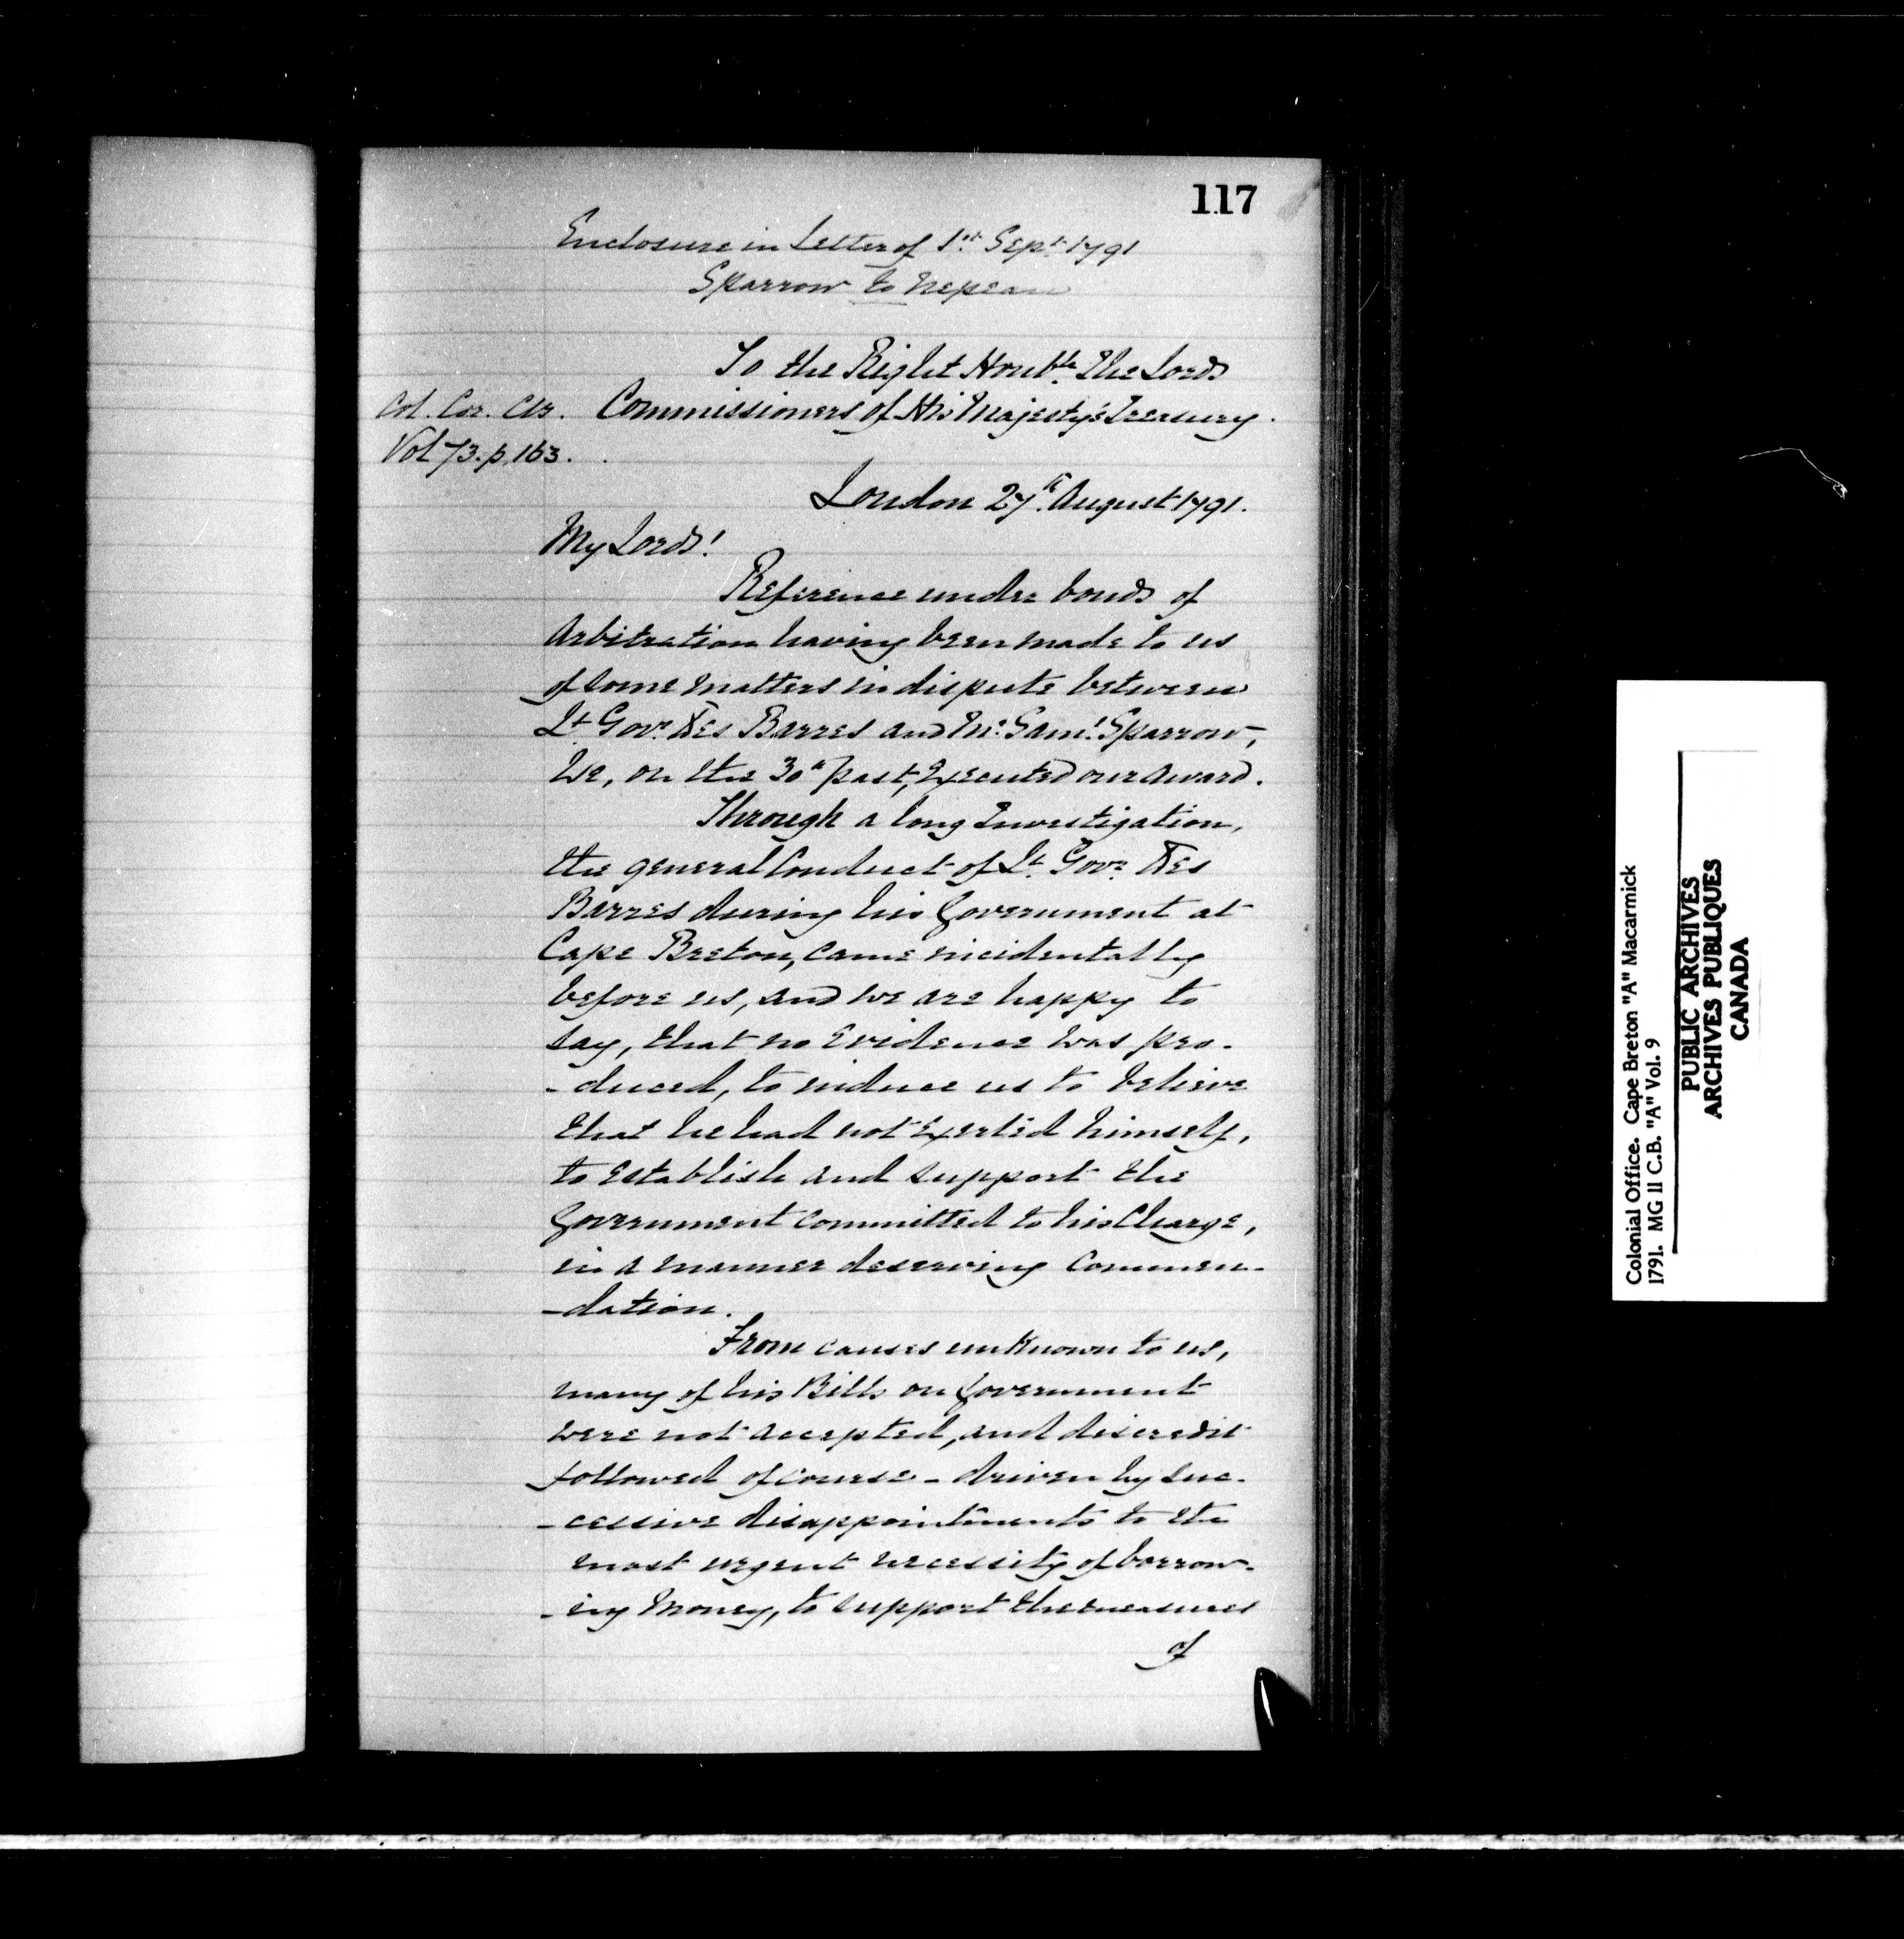 117
Enclosure in Letter of 1st Sept. 1791
Sparrow to Nepean
To the Right Honble. The Lords
Commissioners of His Majesty's Treasury.
Col. Cor. C.B.
Vol 73. p. 163.
London 27th. August 1791.
My Lords!
Reference under bonds of
Arbitration having been made to us
of some matters in dispute between
Lt. Govr. Des Barres and Mr. Saml. Sparrow,
We, on the 30th past, Executed our Award.
Through a long Investigation,
the general Conduct of Lt. Govr. Des
Barres during his Government at
Cape Breton, came incidentally
before us, and we are happy to
say, that no Evidence was pro-
-duced, to induce us to believe
that he had not Exerted himself,
to Establish and support the
Government committed to his Charge,
in a manner deserving Commen-
-dation.
From causes unknown to us,
many of his Bills on Government
were not accepted, and discredit
followed of course - driven by suc-
-cessive disappointments to the
most urgent necessity of borrow-
-ing Money, to support the measures
of
Colonial Office. Cape Breton "A" Macarmick
1791. MG 11 C.B. "A" Vol. 9
PUBLIC ARCHIVES
ARCHIVES PUBLIQUES
CANADA